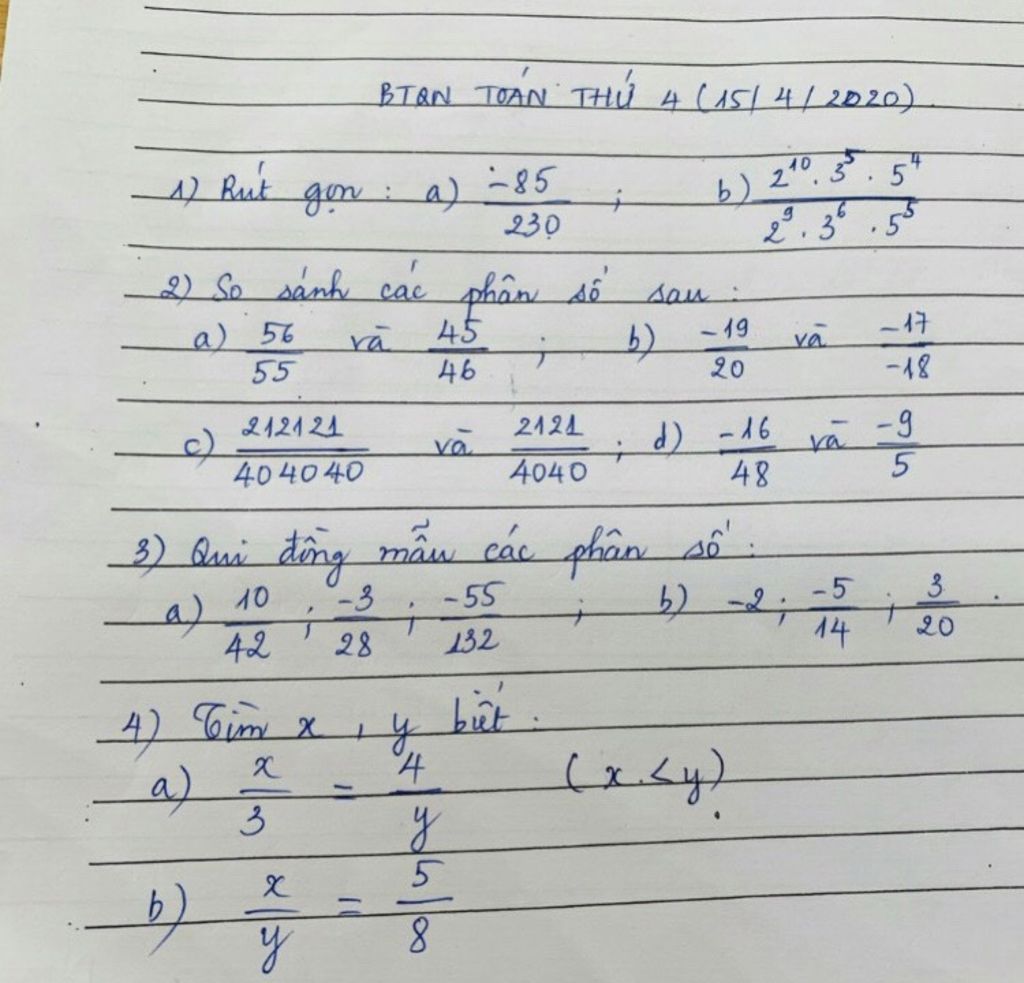 BTQN TOÁN THỨ 4 (15/4/2020)
1) Rút gọn : a) -85/230 ; b) 2^10 . 3^5 . 5^4 / 2^9 . 3^6 . 5^5
2) So sánh các phân số sau :
a) 56/55 và 45/46 ; b) -19/20 và -17/-18
c) 212121/404040 và 2121/4040 ; d) -16/48 và -9/5
3) Qui đồng mẫu các phân số :
a) 10/42 ; -3/28 ; -55/132 ; b) -2 ; -5/14 ; 3/20 .
4) Tìm x , y biết :
a) x/3 = 4/y (x < y)
b) x/y = 5/8